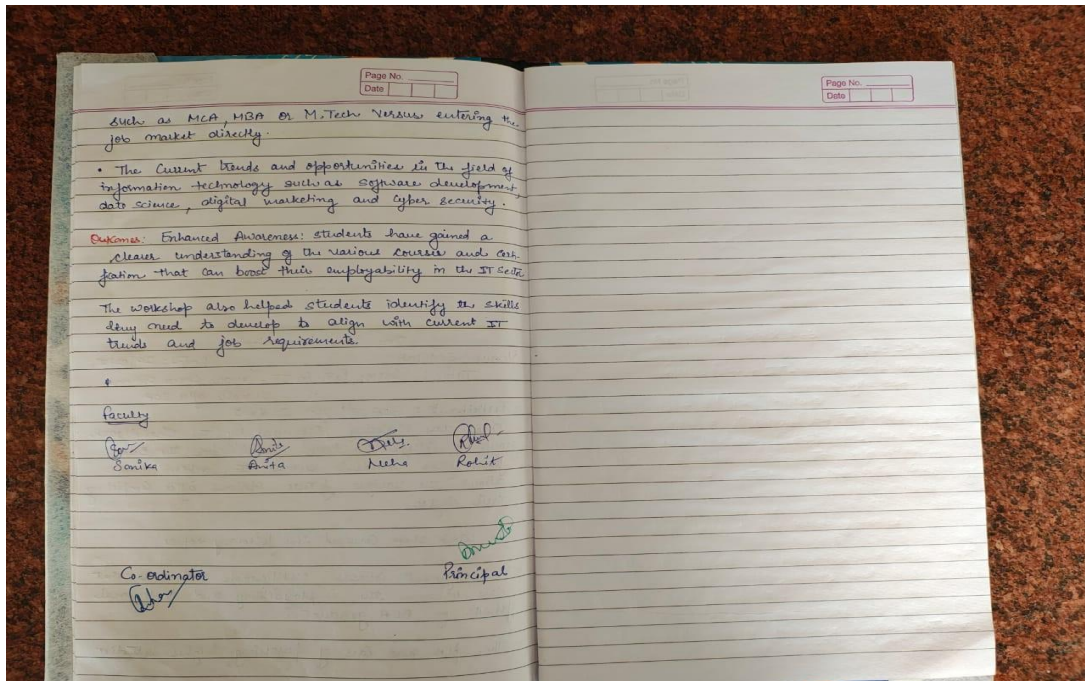 Page No.
Date
such as MCA, MBA or M.Tech Versus entering the
job market directly.
• The Current trends and opportunities in the field of
information technology such as software development,
data science, digital marketing and cyber security.
Outcomes: Enhanced Awareness: students have gained a
clearer understanding of the various courses and certi-
fication that can boost their employability in the IT Sector
The workshop also helped students identify the skills
they need to develop to align with current IT
trends and job requirements.
Faculty
Sonika Anita Neha Rohit
Co-ordinator Principal
Page No.
Date